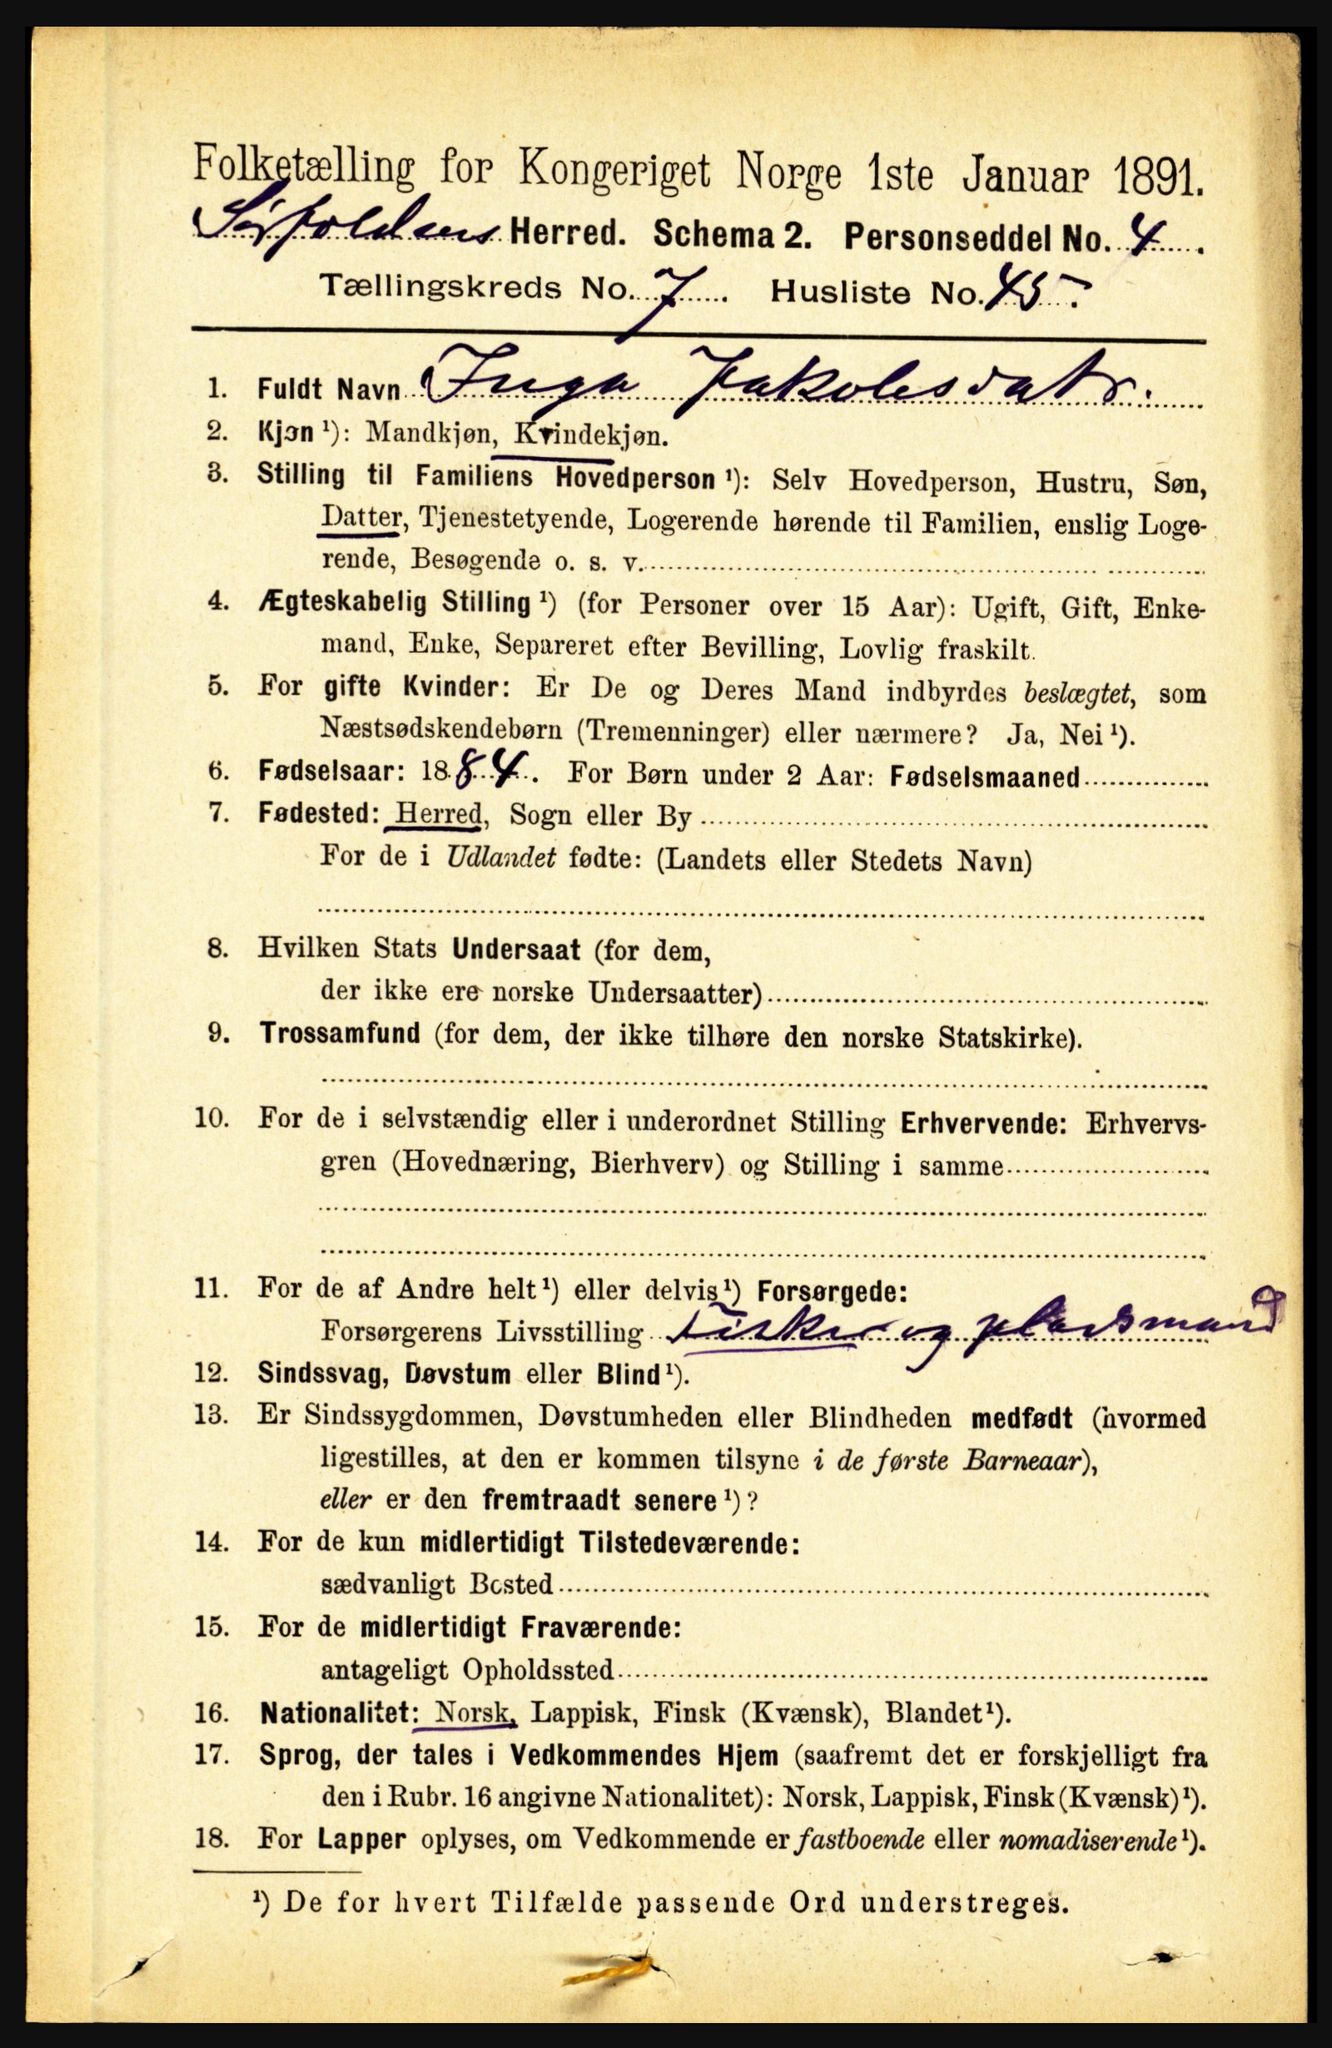 Folketælling for Kongeriget Norge 1ste Januar 1891.
Sørfoldens Herred. Schema 2. Personseddel No. 4.
Tællingskreds No. 7. Husliste No. 45.
1. Fuldt Navn Inga Jakobsdatr.
2. Kjøn ¹): Mandkjøn, Kvindekjøn.
3. Stilling til Familiens Hovedperson ¹): Selv Hovedperson, Hustru, Søn,
Datter, Tjenestetyende, Logerende hørende til Familien, enslig Loge-
rende, Besøgende o. s. v.
4. Ægteskabelig Stilling ¹) (for Personer over 15 Aar): Ugift, Gift, Enke-
mand, Enke, Separeret efter Bevilling, Lovlig fraskilt.
5. For gifte Kvinder: Er De og Deres Mand indbyrdes beslægtet, som
Næstsødskendebørn (Tremenninger) eller nærmere? Ja, Nei ¹).
6. Fødselsaar: 1884. For Børn under 2 Aar: Fødselsmaaned
7. Fødested: Herred, Sogn eller By
For de i Udlandet fødte: (Landets eller Stedets Navn)
8. Hvilken Stats Undersaat (for dem,
der ikke ere norske Undersaatter)
9. Trossamfund (for dem, der ikke tilhøre den norske Statskirke).
10. For de i selvstændig eller i underordnet Stilling Erhvervende: Erhvervs-
gren (Hovednæring, Bierhverv) og Stilling i samme
11. For de af Andre helt ¹) eller delvis ¹) Forsørgede:
Forsørgerens Livsstilling Fisker og pladsmand
12. Sindssvag, Døvstum eller Blind ¹).
13. Er Sindssygdommen, Døvstumheden eller Blindheden medfødt (hvormed
ligestilles, at den er kommen tilsyne i de første Barneaar),
eller er den fremtraadt senere ¹)?
14. For de kun midlertidigt Tilstedeværende:
sædvanligt Bosted
15. For de midlertidigt Fraværende:
antageligt Opholdssted
16. Nationalitet: Norsk, Lappisk, Finsk (Kvænsk), Blandet ¹).
17. Sprog, der tales i Vedkommendes Hjem (saafremt det er forskjelligt fra
den i Rubr. 16 angivne Nationalitet): Norsk, Lappisk, Finsk (Kvænsk) ¹).
18. For Lapper oplyses, om Vedkommende er fastboende eller nomadiserende ¹).
¹) De for hvert Tilfælde passende Ord understreges.